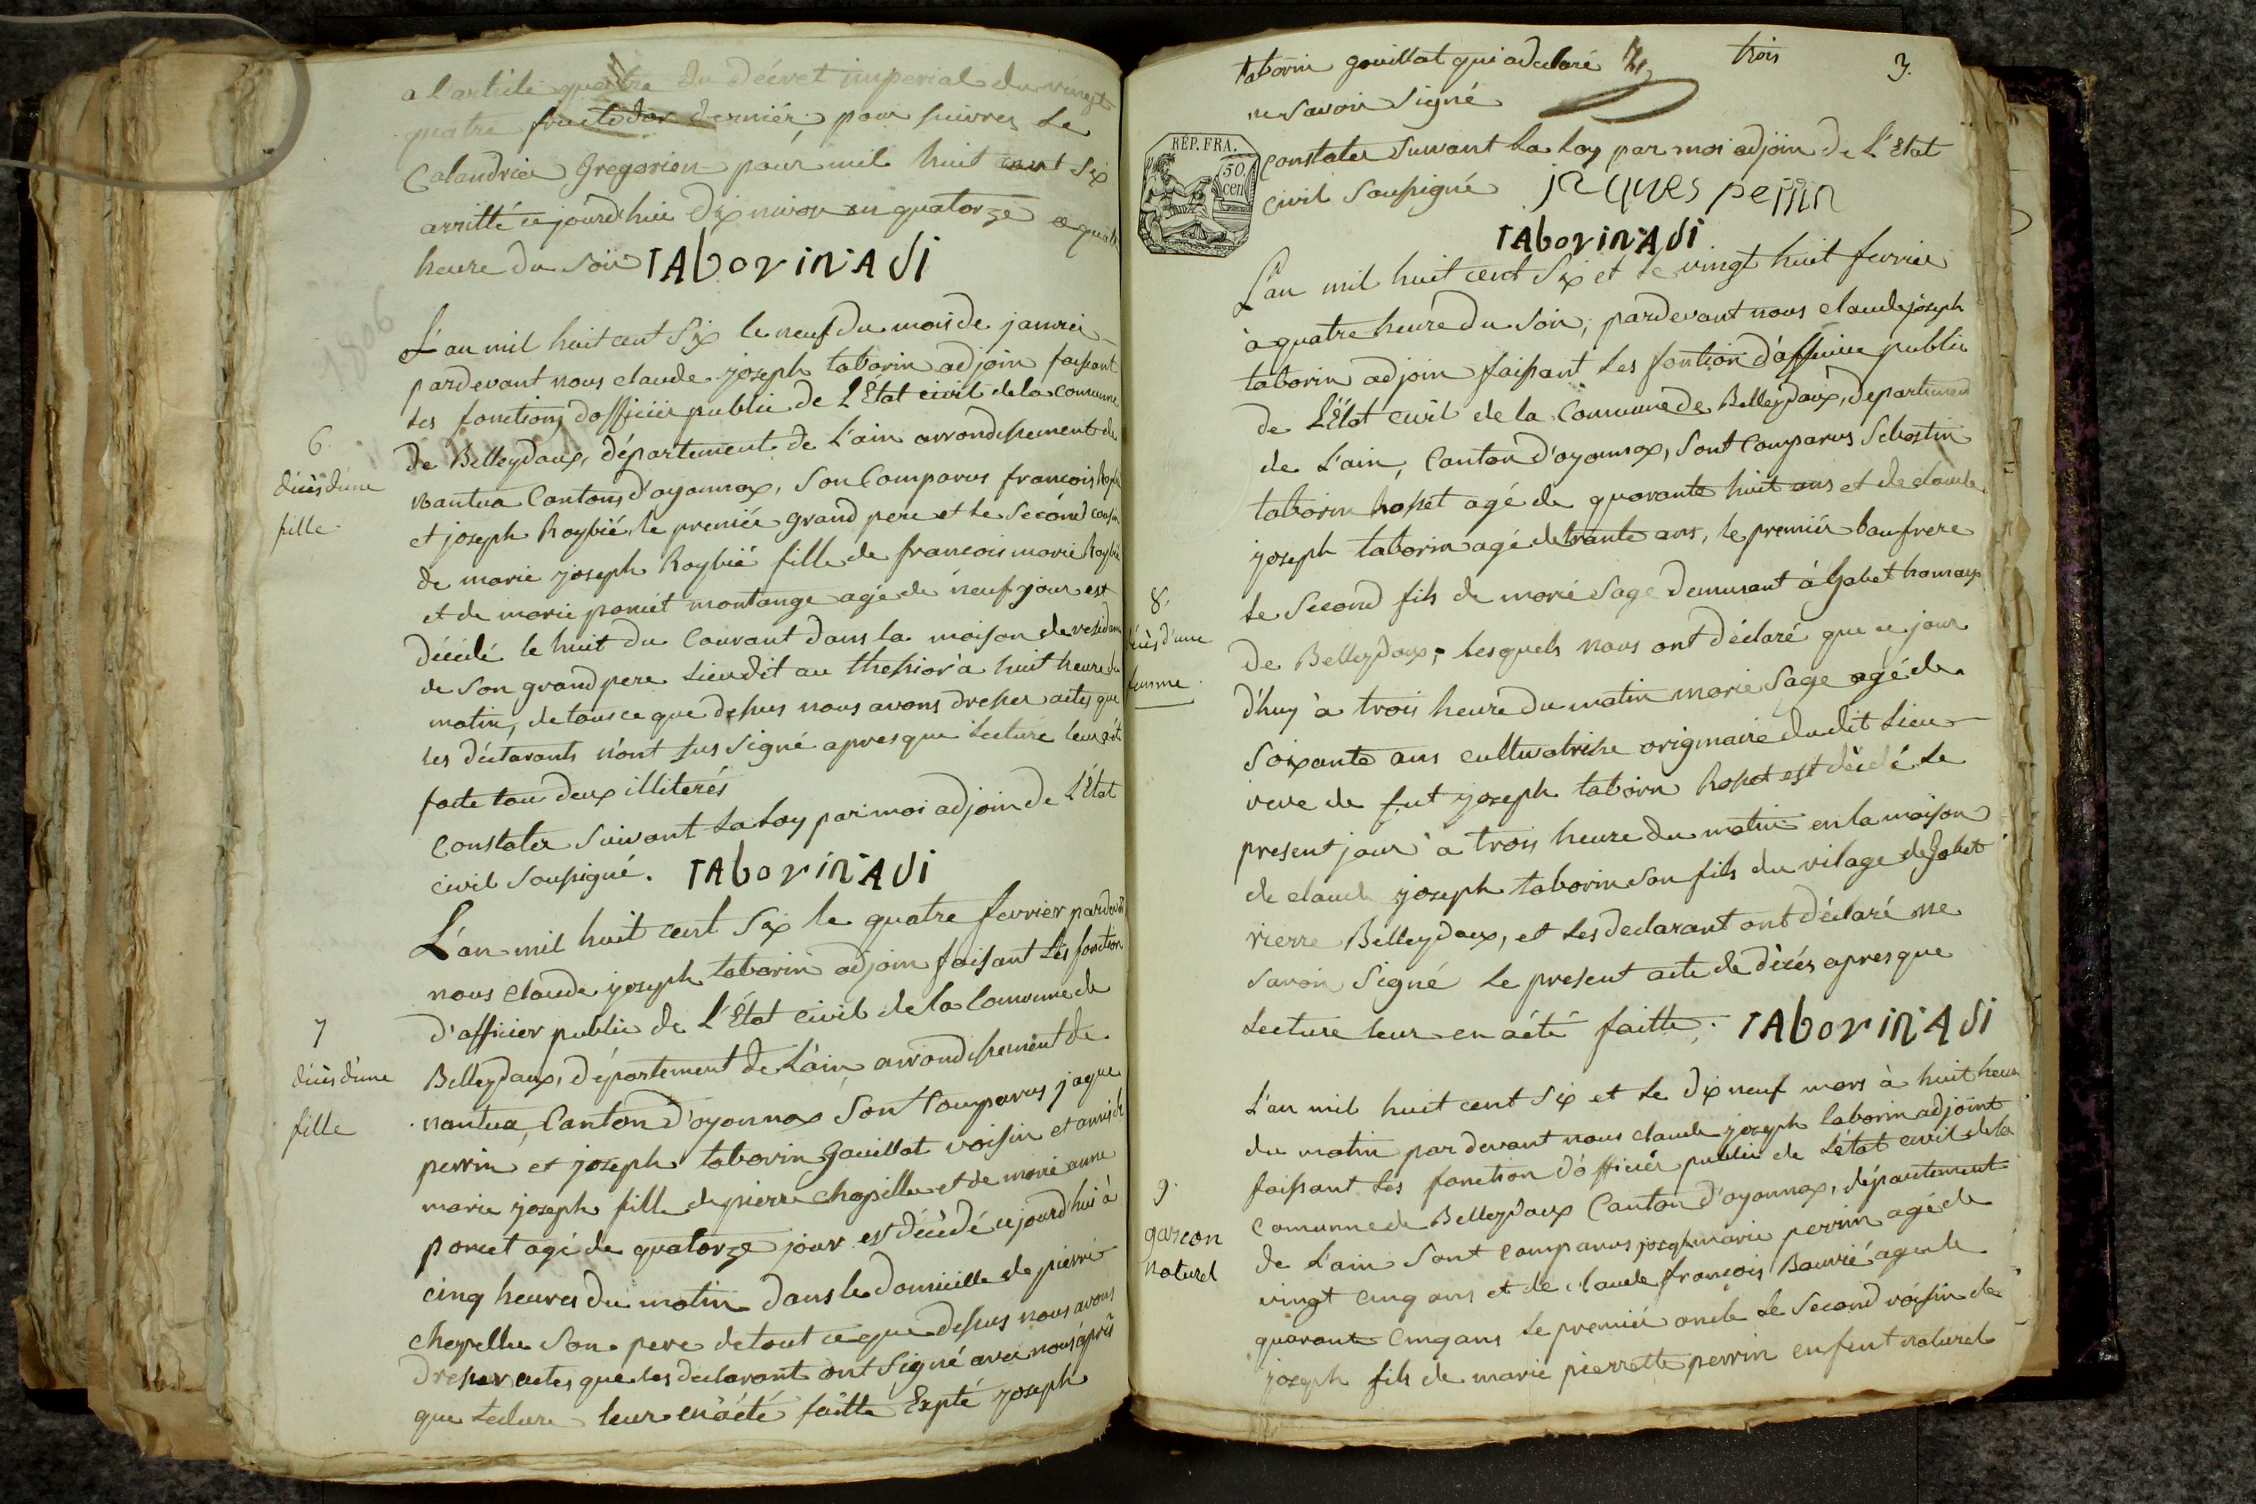 a l'article quatre du décret imperial du vingt
quatre fructidor dernier, pour suivres le
Calandrier Gregorien pour mil huit cent six
arretté ce jourd'hui dix nivose an quatorze a quatre
heure du Soir TAborin Adj
L'an mil huit cent Six le neuf du mois de janvier
pardevant nous claude joseph taborin adjoin faisant
les fonctions d'officier public de L'État civil de la comune
6.
décès d'une
fille
de Belleydoux, département de L'ain arrondissement de
nantua Cantons d'oyonnax, Son Comparus francois
et joseph Roybié, le premier grand pere et le Second cousin
de marie joseph Roybié fille de francois marie Roybié
et de marie poncet montange agé de neuf jour est
décédé le huit du Courant dans la maison de residence
de Son grand pere lieu dit au à huit heure du
matin, de tous ce que dessus nous avons dresser actes que
les déclarants n'ont sus signé apres que lecture leur a ét
faite tou deux illiterés
Constater Suivant la Loy par moi adjoin de L'État
civil Soussigné. TAborin Adj
L'an mil huit cent Six le quatre fevrier pardevant
nous claude joseph taborin adjoin faisant les fonction
d'officier public de L'État civil de la Commune de
7
décès d'une
fille
Belleydoux, département de L'ain, arrondissement de
nantua, Canton d'oyonnax Sont Comparus jaque
perrin et joseph taborin gouillat voisin et amis de
marie joseph fille de pierre chapellu et de marie anne
poncet agé de quatorze jour est décédé ce jourd'hui à
cinq heures du matin dans le domicille de pierre
chapellu Son pere de tout ce que dessus nous avons
dresser actes que les declarant ont Signé avec nous après
que lecture leur en a été faitte Expté joseph
taborin gouillat qui a déclaré trois 3.
ne savoir Signé
RÉP. FRA.
50.
cen
Constater Suivant la Loy par moi adjoin de L'État
civil Soussigné jaques perrin
TAborin Adj
L'an mil huit cent Six et le vingt huit fevrier
à quatre heure du Soir, pardevant nous claude joseph
taborin adjoin faisant les fontion d'afficier public
de L'État civil de la Commune de Belleydoux, departement
de L'ain, Canton d'oyonnax, Sont Comparus Sebastin
taborin Rosset agé de quarante huit ans et de claude
joseph taborin agé de trante ans, le premier baufrere
8.
décès d'une
femme
le Second fils de marie Sage demurant à Gobet hamaux
de Belleydoux, lesquels nous ont déclaré que ce jour
d'huy à trois heure du matin marie Sage agé de
Soixante ans cultivatrice originaire dudit lieu
veve de fut joseph taborin Rosset est décédé le
present jour à trois heure du matin en la maison
de claude joseph taborin son fils du vilage de Gobet
rierre Belleydoux, et les declarant ont déclaré ne
savoir Signé le present acte de décés apres que
lecture leur en a été faitte. TAborin Adj
L'an mil huit cent Six et le dix neuf mars à huit heure
du matin par devant nous claude joseph taborin adjoint
9.
garcon
naturel
faissant les fonction d'officier public de L'état civil de la
Comunne de Belleydoux Canton d'oyonnax, département
de L'ain Sont comparus joseph marie perrin agé de
vingt cinq ans et de claude françois Bauvié age de
quarant cinq ans le premier oncle le Second voisin de
joseph fils de marie pierrette perrin enfent naturel